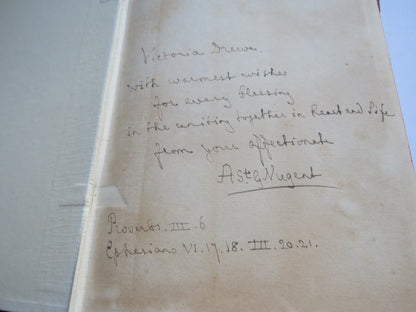 Victoria Drewe.
with warmest wishes
for every blessing
in the uniting together in Heart and Life
from your affectionate
Nugent
Proverbs. III. 6
Ephesians VI. 17. 18. III. 20. 21.